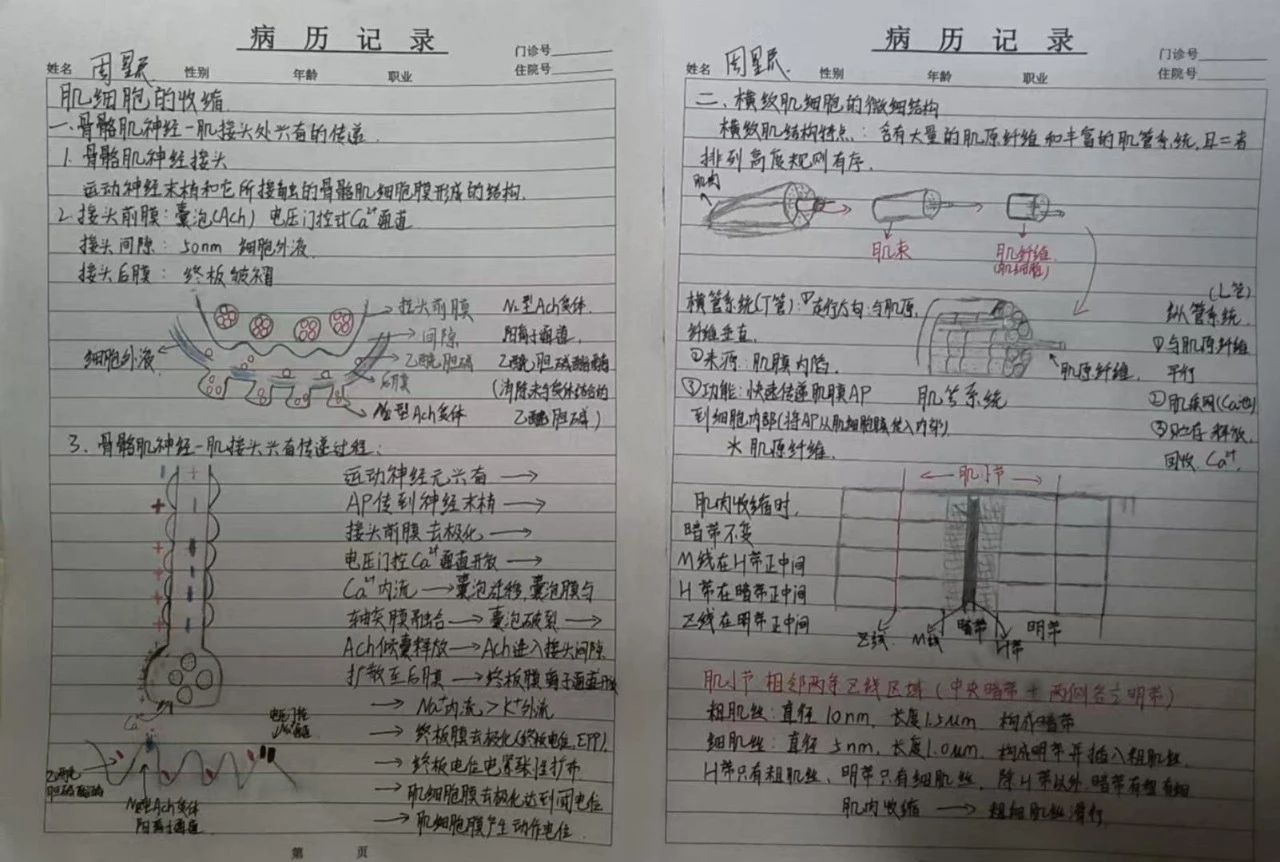 病历记录
门诊号
姓名 周星辰 性别 年龄 职业 住院号
肌细胞的收缩
一、骨骼肌神经-肌接头处兴奋的传递
1. 骨骼肌神经接头
运动神经末梢和它所接触的骨骼肌细胞膜形成的结构.
2. 接头前膜: 囊泡(Ach) 电压门控式Ca²⁺通道
接头间隙: 50nm 细胞外液
接头后膜: 终板皱褶
接头前膜
间隙
乙酰胆碱
后膜
N₂型Ach受体
细胞外液
N₂型Ach受体
阳离子通道
乙酰胆碱酯酶
(消除未与受体结合的
乙酰胆碱)
3. 骨骼肌神经-肌接头兴奋传递过程:
运动神经元兴奋 →
AP传到神经末梢 →
接头前膜去极化 →
电压门控Ca²⁺通道开放 →
Ca²⁺内流 → 囊泡迁移, 囊泡膜与
轴突膜融合 → 囊泡破裂 →
Ach倾囊释放 → Ach进入接头间隙
扩散至后膜 → 终板膜离子通道开放
→ Na⁺内流 > K⁺外流
→ 终板膜去极化(终板电位, EPP).
→ 终板电位电紧张性扩布
→ 肌细胞膜去极化达到阈电位
→ 肌细胞膜产生动作电位.
Ca²⁺
电压门控
乙酰
胆碱酯酶
N₂型Ach受体
阳离子通道
第 页
病历记录
门诊号
姓名 周星辰. 性别 年龄 职业 住院号
二、横纹肌细胞的微细结构
横纹肌结构特点: 含有大量的肌原纤维和丰富的肌管系统, 且二者
排列高度规则有序.
肌肉
肌束
肌纤维
(肌细胞)
横管系统(T管): ①走行方向: 与肌原
纤维垂直.
②来源: 肌膜内陷.
③功能: 快速传递肌膜AP
到细胞内部(将AP从肌细胞膜传入内部).
肌原纤维.
肌管系统
(L管)
纵管系统.
①与肌原纤维
平行
②肌浆网(Ca池)
③贮存、释放,
回收 Ca²⁺.
* 肌原纤维.
← 肌小节 →
肌肉收缩时,
暗带不变
M线在H带正中间
H带在暗带正中间
Z线在明带正中间
Z线 M线 暗带 H带 明带
肌小节 相邻两条Z线区域 (中央暗带 + 两侧各½明带)
粗肌丝: 直径10nm, 长度1.5μm, 构成暗带
细肌丝: 直径5nm, 长度1.0μm, 构成明带并插入粗肌丝.
H带只有粗肌丝, 明带只有细肌丝, 除H带以外, 暗带有粗有细
肌肉收缩 → 粗细肌丝滑行